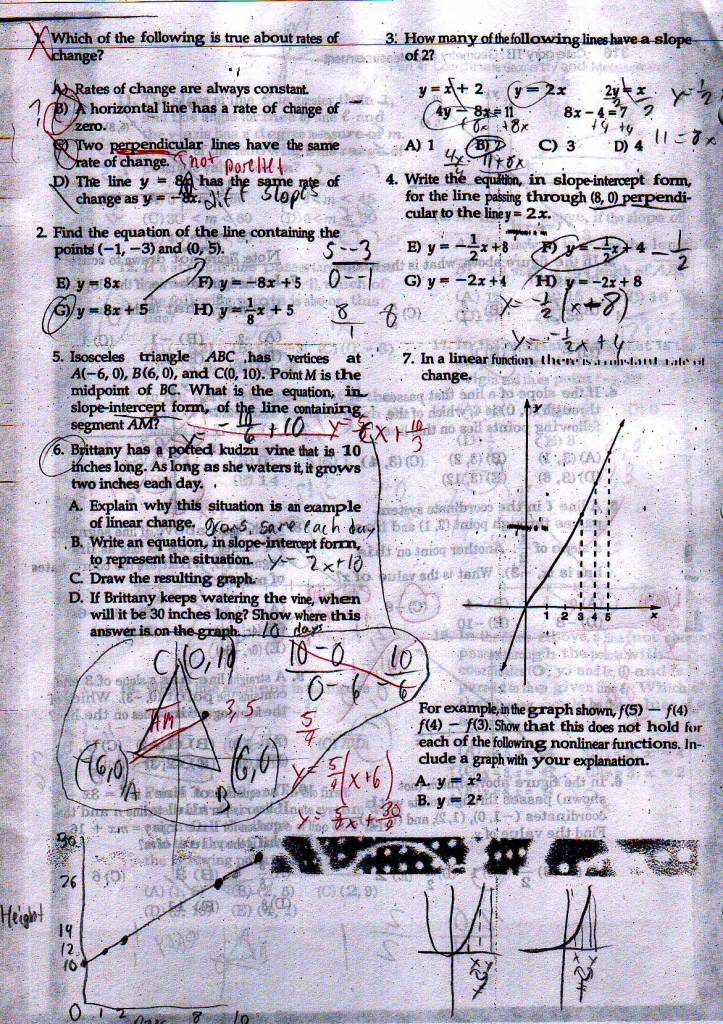 1. Which of the following is true about rates of
change?
A) Rates of change are always constant.
B) A horizontal line has a rate of change of
zero.
C) Two perpendicular lines have the same
rate of change.
not parellel
D) The line y = 8x has the same rate of
change as y = -8x.
diff slopes
2. Find the equation of the line containing the
points (-1, -3) and (0, 5).
E) y = 8x F) y = -8x + 5
G) y = 8x + 5 H) y = 1/8 x + 5
5--3
0--1
8
1
8
3. How many of the following lines have a slope
of 2?
y = x + 2 y = 2x 2y = x
4y - 8x = 11 8x - 4 = 7
+8x +8x +4 +4
A) 1 B) 2 C) 3 D) 4
4y = 11+8x
11 = 8x
4. Write the equation, in slope-intercept form,
for the line passing through (8, 0) perpendi-
cular to the line y = 2x.
E) y = -1/2 x + 8 F) y = -1/2 x + 4
-1/2
G) y = -2x + 4 H) y = -2x + 8
y = -1/2 (x + 8)
y = -1/2 x + 4
5. Isosceles triangle ABC has vertices at
A(-6, 0), B(6, 0), and C(0, 10). Point M is the
midpoint of BC. What is the equation, in
slope-intercept form, of the line containing
segment AM?
y = -10/6 + 10
6. Brittany has a potted kudzu vine that is 10
inches long. As long as she waters it, it grows
two inches each day.
A. Explain why this situation is an example
of linear change. grows same each day
B. Write an equation, in slope-intercept form,
to represent the situation. y = 2x+10
C. Draw the resulting graph.
D. If Brittany keeps watering the vine, when
will it be 30 inches long? Show where this
answer is on the graph. 10 days
C (0, 10)
10-0
0-6
10
6
AM
3, 5
(-6,0)
A
(6,0)
B
5
9
y = 5/9 (x+6)
y = 5/9x + 30/9
30
26
14
12
10
0 1 2 8 10
Height
Days
7. In a linear function there is a constant rate of
change.
y
1 2 3 4 5 x
For example, in the graph shown, f(5) - f(4) =
f(4) - f(3). Show that this does not hold for
each of the following nonlinear functions. In-
clude a graph with your explanation.
A. y = x²
B. y = 2ˣ